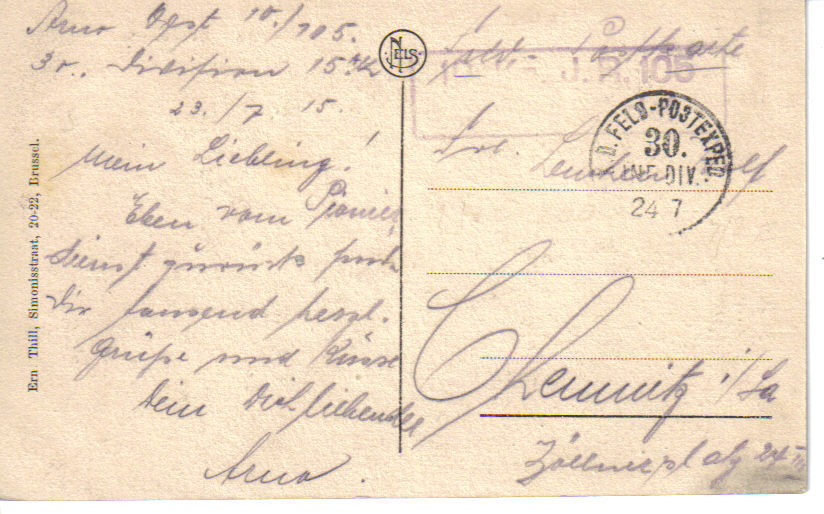 Arno Opst 10./105.
30. Division 15. AK
23./7 15.
Mein Liebling!
Eben vom Pionier
dienst zurück
Dir tausend herzl.
Grüße und Küsse
Dein Dich liebender
Arno.
Ern Thill, Simonisstraat, 20-22, Brussel.
NELS
Feldpostkarte
J. R. 105
D. FELD-POSTEXPED
30.
INF. DIV.
24 7
Frl.
Chemnitz i/Sa
Zöllnerplatz 24 III